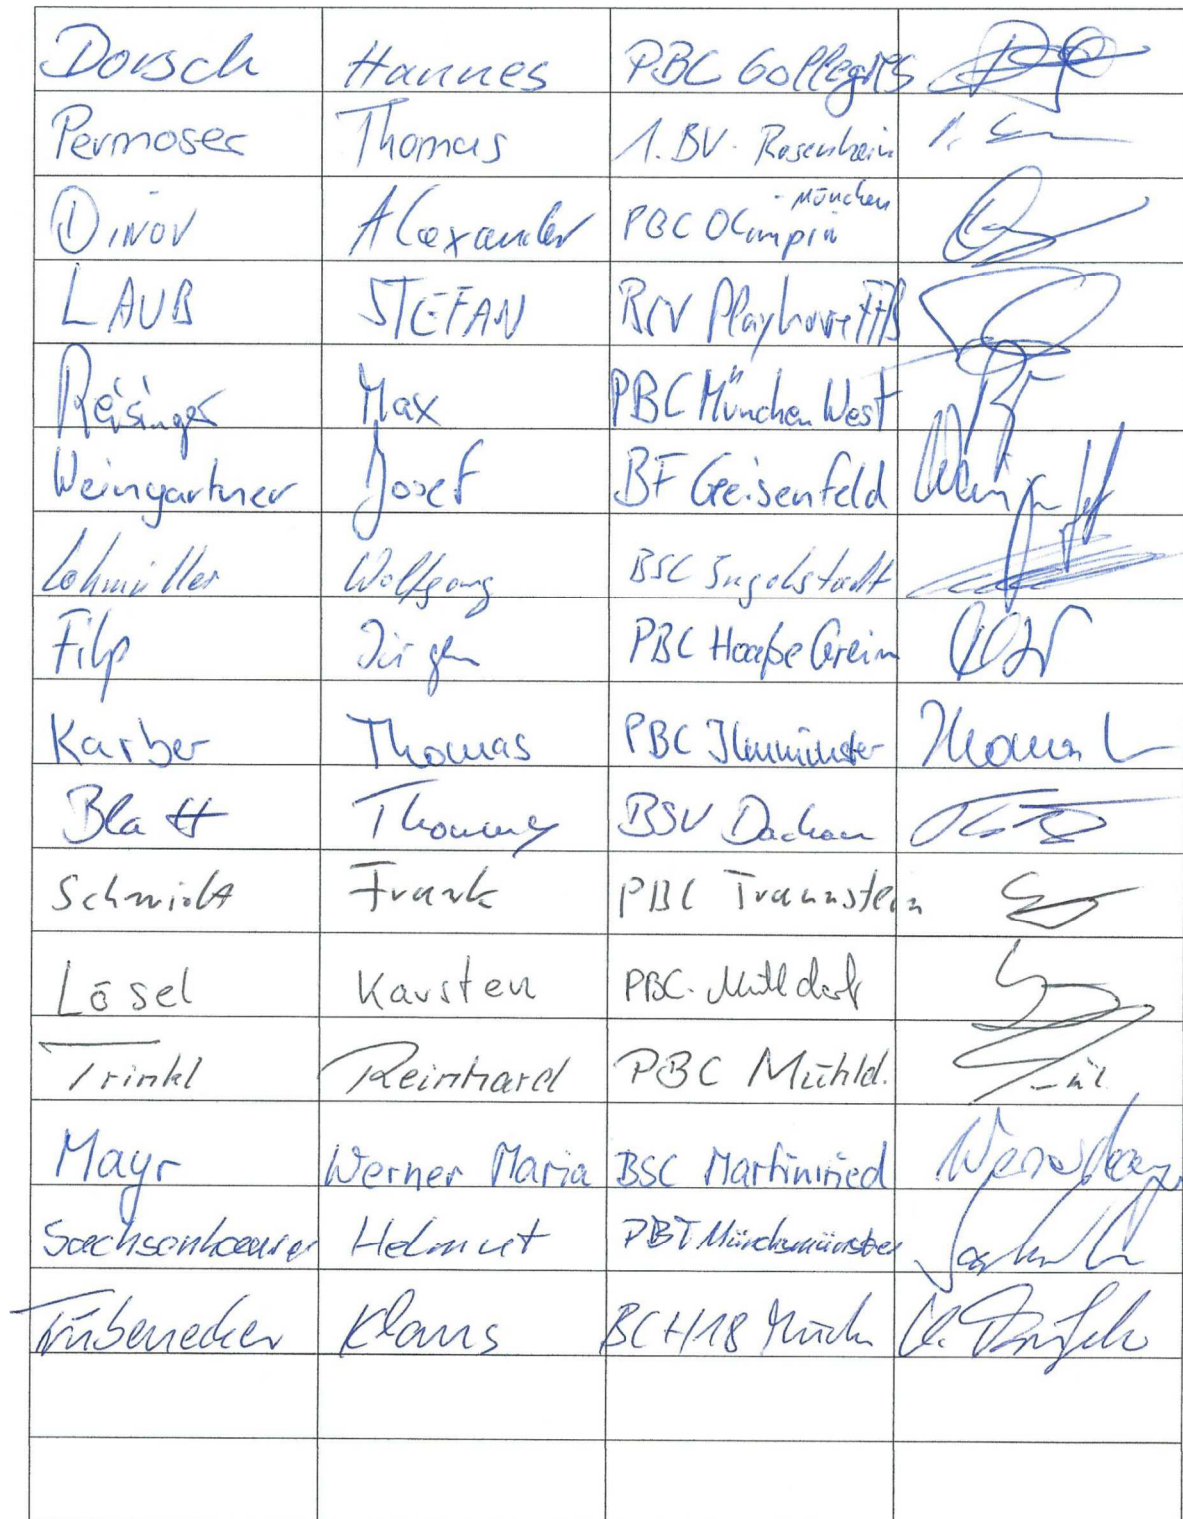 Dorsch Hannes PBC Gollegas
Permoser Thomas 1. BV. Rosenheim
Dinov Alexander PBC Olimpia - München
LAUB STEFAN BSV Playhouse FFB
Reisinger Max PBC München West
Weingartner Josef BF Geisenfeld
Lohmüller Wolfgang BSC Ingolstadt
Filp Jürgen PBC
Karber Thomas PBC Ilmmünster
Blatt Thommy BSV Dachau
Schmidt Frank PBC Traunstein
Lösel Karsten PBC. Mühldorf
Trinkl Reinhard PBC Mühld.
Mayr Werner Maria BSC Martinsried
Sachsenhauser Helmut PBT Münchsmünster
Trübenecker Klaus BC H18 Münch